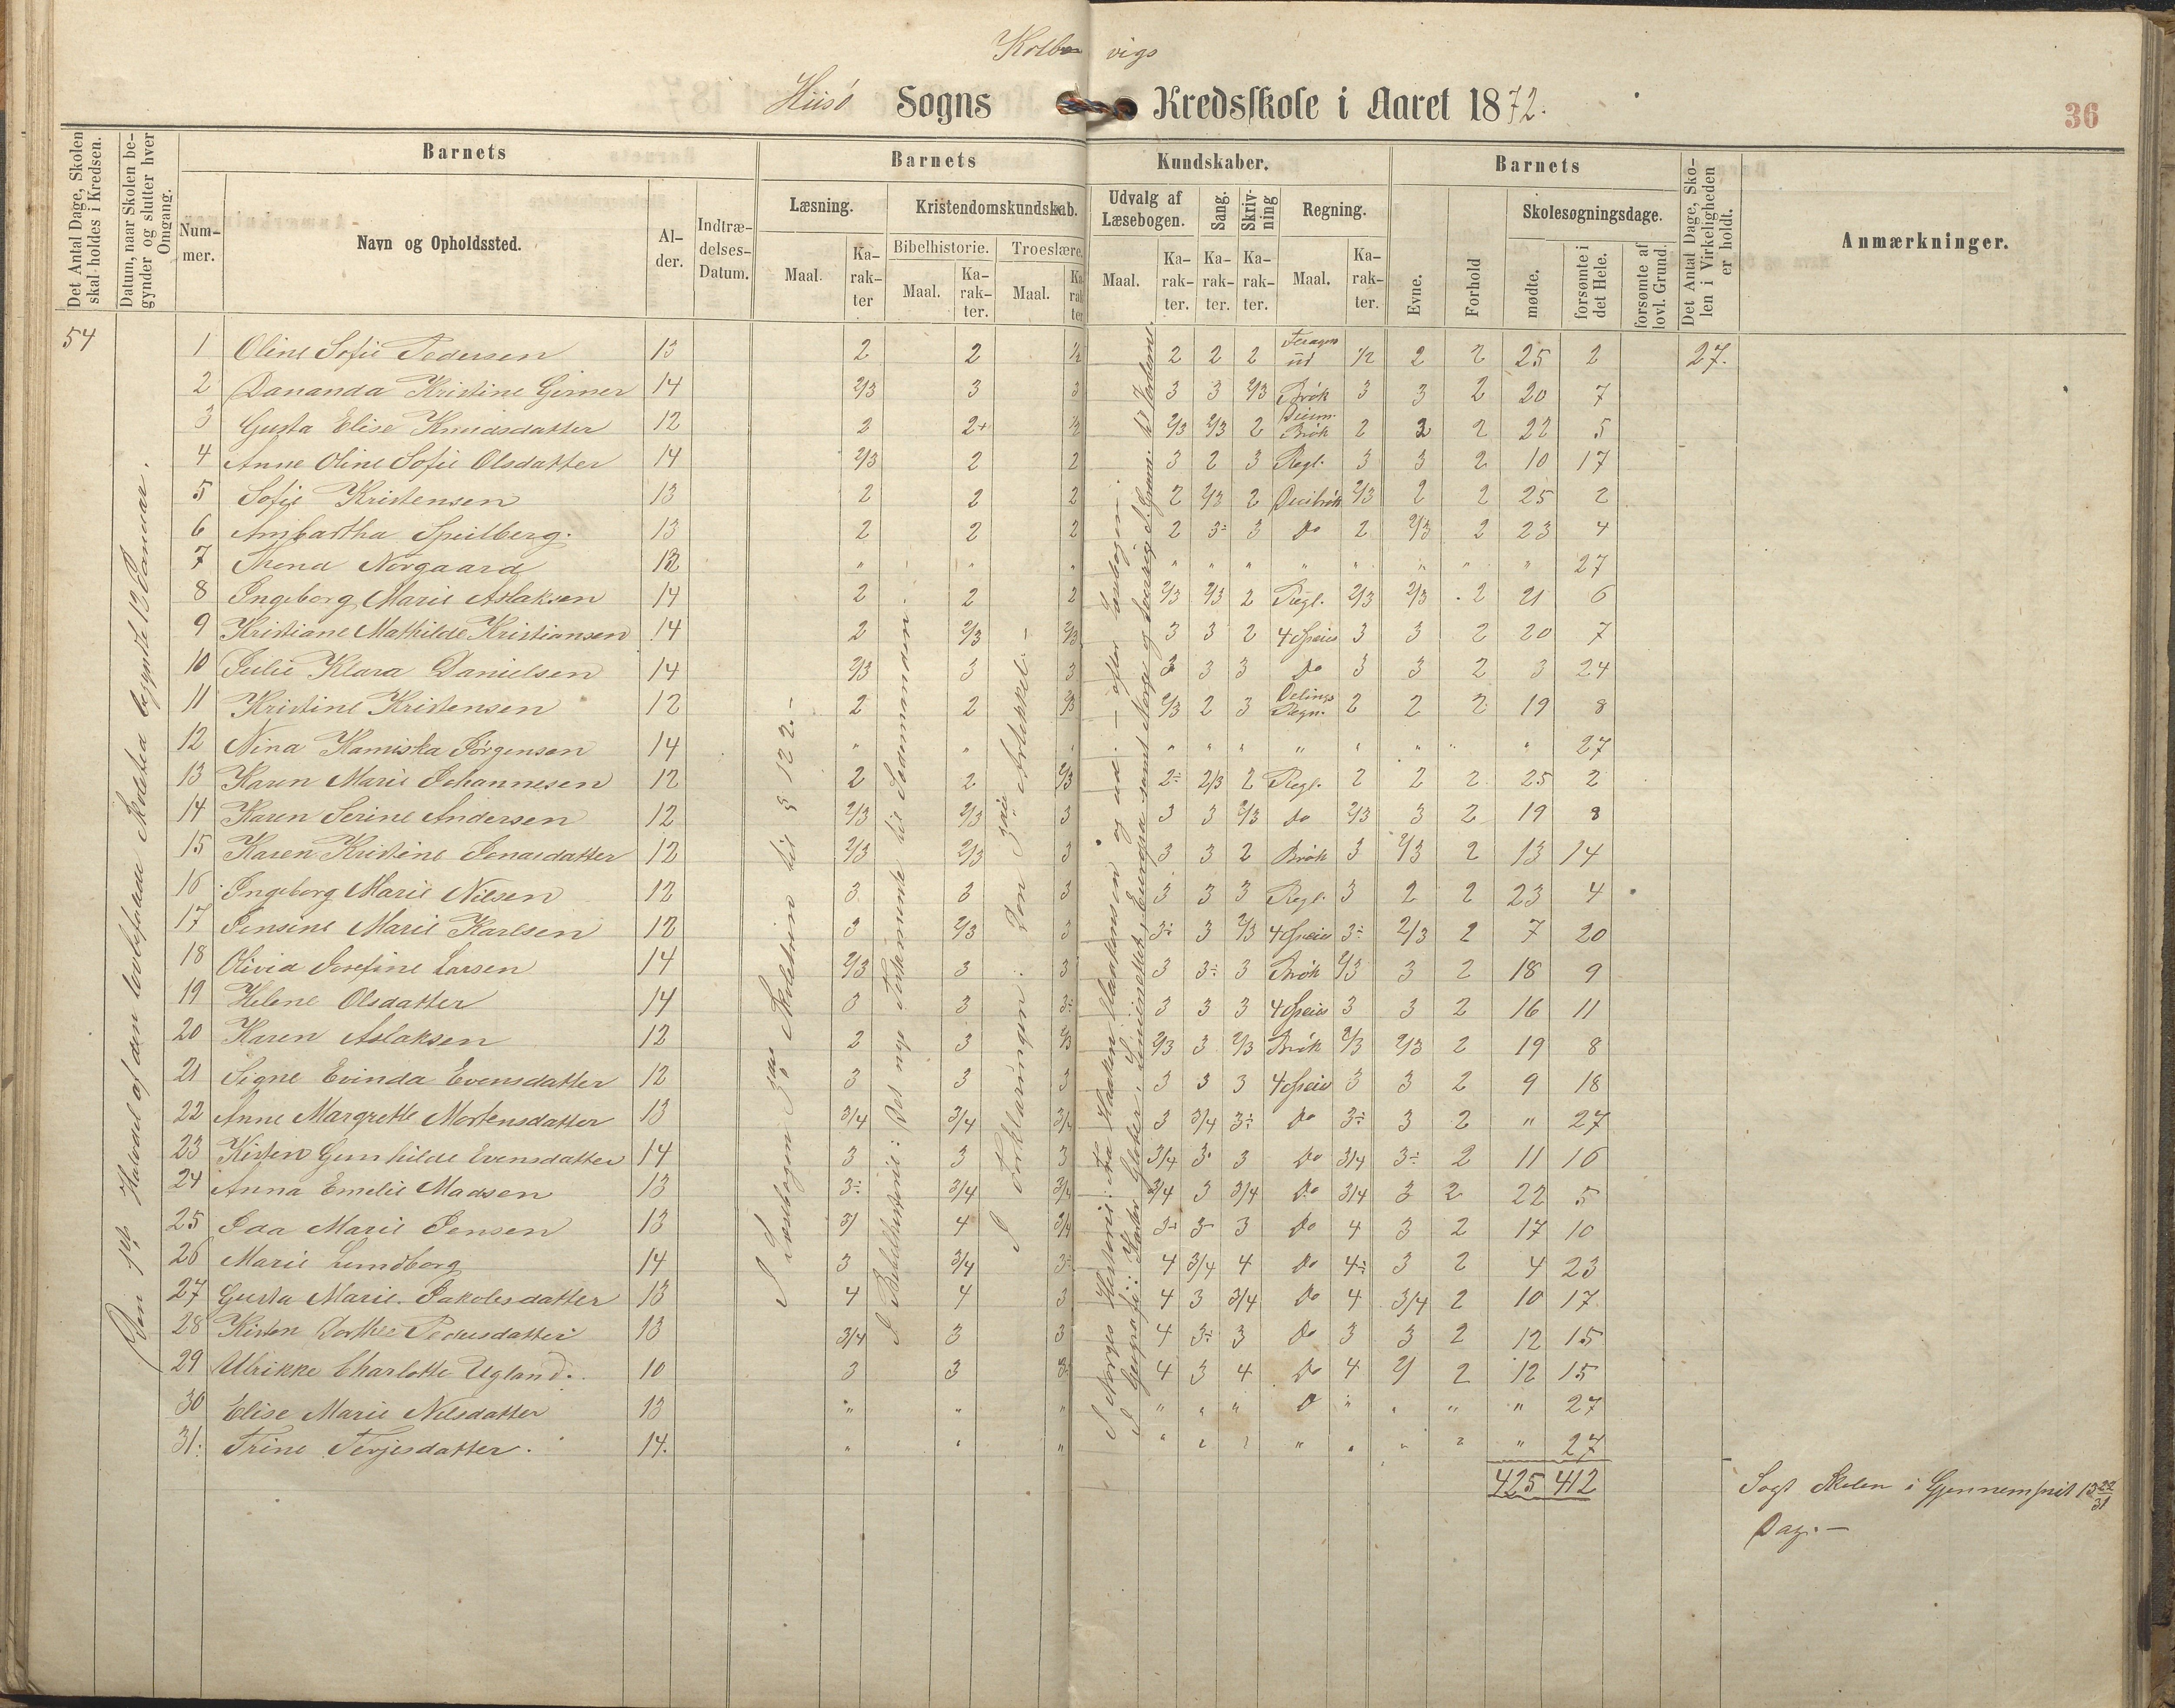 Kolb vigs
Hiisö Sogns Kredsskole i Aaret 1872.
36
Det Antal Dage, Skolen skal holdes i Kredsen.
Datum, naar Skolen begynder og slutter hver Omgang.
Barnets
Nummer.
Navn og Opholdssted.
Alder.
Indtrædelses-Datum.
Barnets Kundskaber.
Læsning.
Maal.
Karakter
Kristendomskundskab.
Bibelhistorie.
Maal.
Karakter.
Troeslære.
Maal.
Karakter
Udvalg af Læsebogen.
Maal.
Karakter.
Sang.
Karakter.
Skrivning
Karakter.
Regning.
Maal.
Karakter.
Barnets
Evne.
Forhold
Skolesøgningsdage.
mødte.
forsømte i det Hele.
forsømte af lovl. Grund.
Det Antal Dage, Skolen i Virkeligheden er holdt.
Anmærkninger.
54
Den 1ste Halvdel af den lovbefalede Skoletid begyndte 12 Januar.
I Læsebogen 3die Skoletrin til § 122.-
I Bibelhistorie: Det nye Testamente til
I Forklaringen: Den 3die Artikkel.-
1 Oline Sofie Pedersen 13 2 2 1/2 2 2 2 ud 1/2 2 2 25 2 27.
2 Dananda Kristine Girner 14 2/3 3 3 3 3 2/3 Brök 3 3 2 20 7
3 Gusta Elise Knudsdatter 12 2 2+ 1/2 2/3 2/3 2 Brök 2 2 2 22 5
4 Anne Oline Sofie Olsdatter 14 2/3 2 2 3 2 3 Regl. 3 3 2 10 17
5 Sofie Kristensen 13 2 2 2 2 2/3 2 Decibrök 2/3 2 2 25 2
6 Ambartha Speilberg. 13 2 2 2 2 3÷ 3 Do 2 2/3 2 23 4
7 Thena Norgaard 12 " " " " " " " " " " " 27
8 Ingeborg Marie Aslaksen 14 2 2 2 2/3 2/3 2 Regl. 2/3 2/3 2 21 6
9 Kristiane Mathilde Kristiansen 14 2 2/3 2/3 3 3 2 4 Speies 3 3 2 20 7
10 Julie Klara Danielsen 14 2/3 3 3 3 3 3 Do 3 3 2 3 24
11 Kristine Kristensen 12 2 2 2/3 2/3 2 3 Delings Regn. 2 2 2 19 8
12 Nina Kamiska Jörgensen 14 " " " " " " " " " " " 27
13 Karen Marie Johannesen 12 2 2 2/3 2÷ 2/3 2 Regl. 2 2 2 25 2
14 Karen Serine Andersen 12 2/3 2/3 3 3 3 2/3 do 2/3 3 2 19 8
15 Karen Kristine Jonasdatter 12 2/3 2/3 3 3 3 2 Brök 3 2/3 2 13 14
16 Ingeborg Marie Nilsen 12 3 3 3 3 3 3 Regl. 3 2 2 23 4
17 Jensine Marie Karlsen 12 3 2/3 3 3÷ 3 2/3 4 Speies 3÷ 2/3 2 7 20
18 Olivia Josefine Larsen 14 2/3 3 3 3 3÷ 3 Brök 2/3 3 2 18 9
19 Helene Olsdatter 14 3 3 3÷ 3 3 3 4 Speies 3 3 2 16 11
20 Karen Aslaksen 12 2 3 2/3 2/3 3 2/3 Brök 2/3 2/3 2 19 8
21 Signe Evinda Evensdatter 12 3 3 3 3 3 3 4 Speies 3 3 2 9 18
22 Anne Margrethe Mortensdatter 13 3/4 3/4 3/4 3 3/4 3÷ Do 3÷ 3 2 " 27
23 Kisten Gunhilde Evensdatter 14 3 3 3 3/4 3 3 Do 3/4 3÷ 2 11 16
24 Anna Emelie Madsen 13 3÷ 3/4 3/4 3/4 3 3/4 Do 3/4 3 2 22 5
25 Ida Marie Jensen 13 3/ 4 3/4 3÷ 3 3 Do 4 3 2 17 10
26 Marie Lundborg 14 3 3/4 3÷ 4 3/4 4 Do 4÷ 3 2 4 23
27 Gusta Marie Jakobsdatter 13 4 4 3 4 3 3/4 Do 4 3/4 2 10 17
28 Kisten Dorthe Pedersdatter 13 3/4 3 3 4 3÷ 3 Do 3 3 2 12 15
29 Ulrikke Charlotte Ugland. 10 3 3 3 4 3 4 Do 4 2/ 2 12 15
30 Elise Marie Nilsdatter 13 " " " " " " " " " " 27
31. Trine Terjesdatter. 14. " " " " " " " " " " " 27
425 412
Sogt Skolen i Gjennemsnit 13 22/31
Dag.-